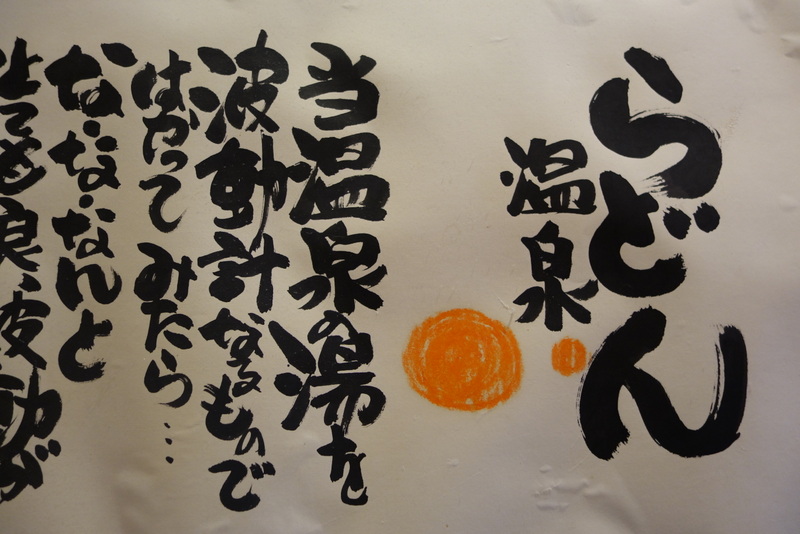 らどん
温泉
当温泉の湯を
波動計なるもので
はかって みたら…
な・な・なんと
とても良い波動が